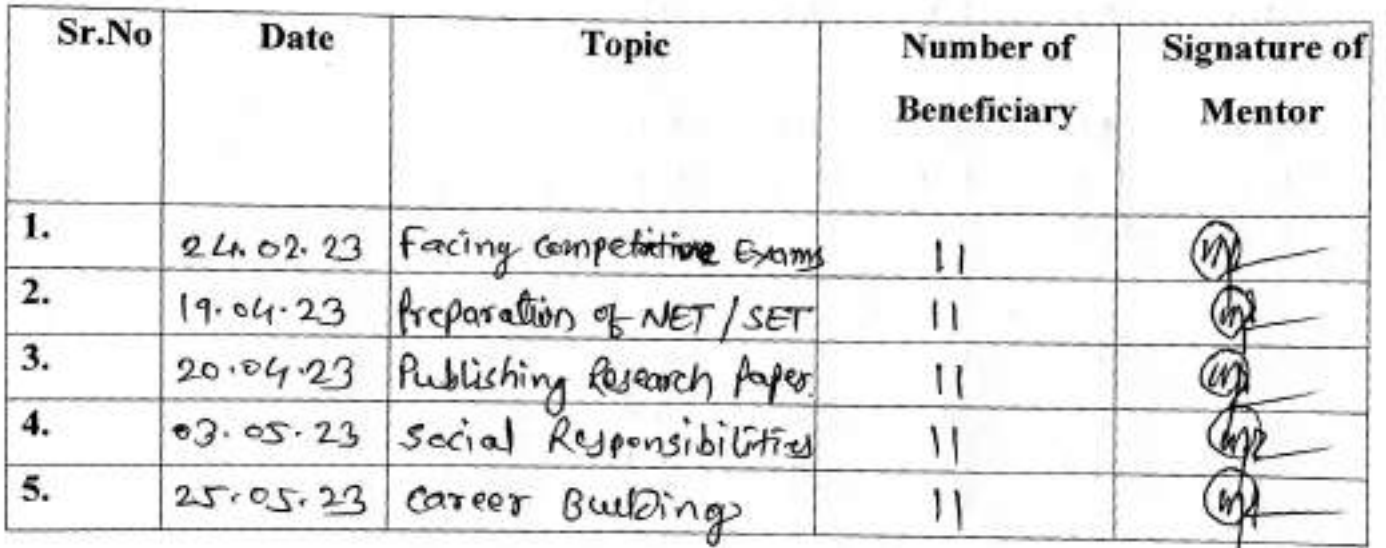 Sr.No Date Topic Number of Signature of
Beneficiary Mentor
1. 24.02.23 Facing Competitive Exams 11
2. 19.04.23 Preparation of NET / SET 11
3. 20.04.23 Publishing Research Paper. 11
4. 03.05.23 Social Responsibilities 11
5. 25.05.23 Career Building 11